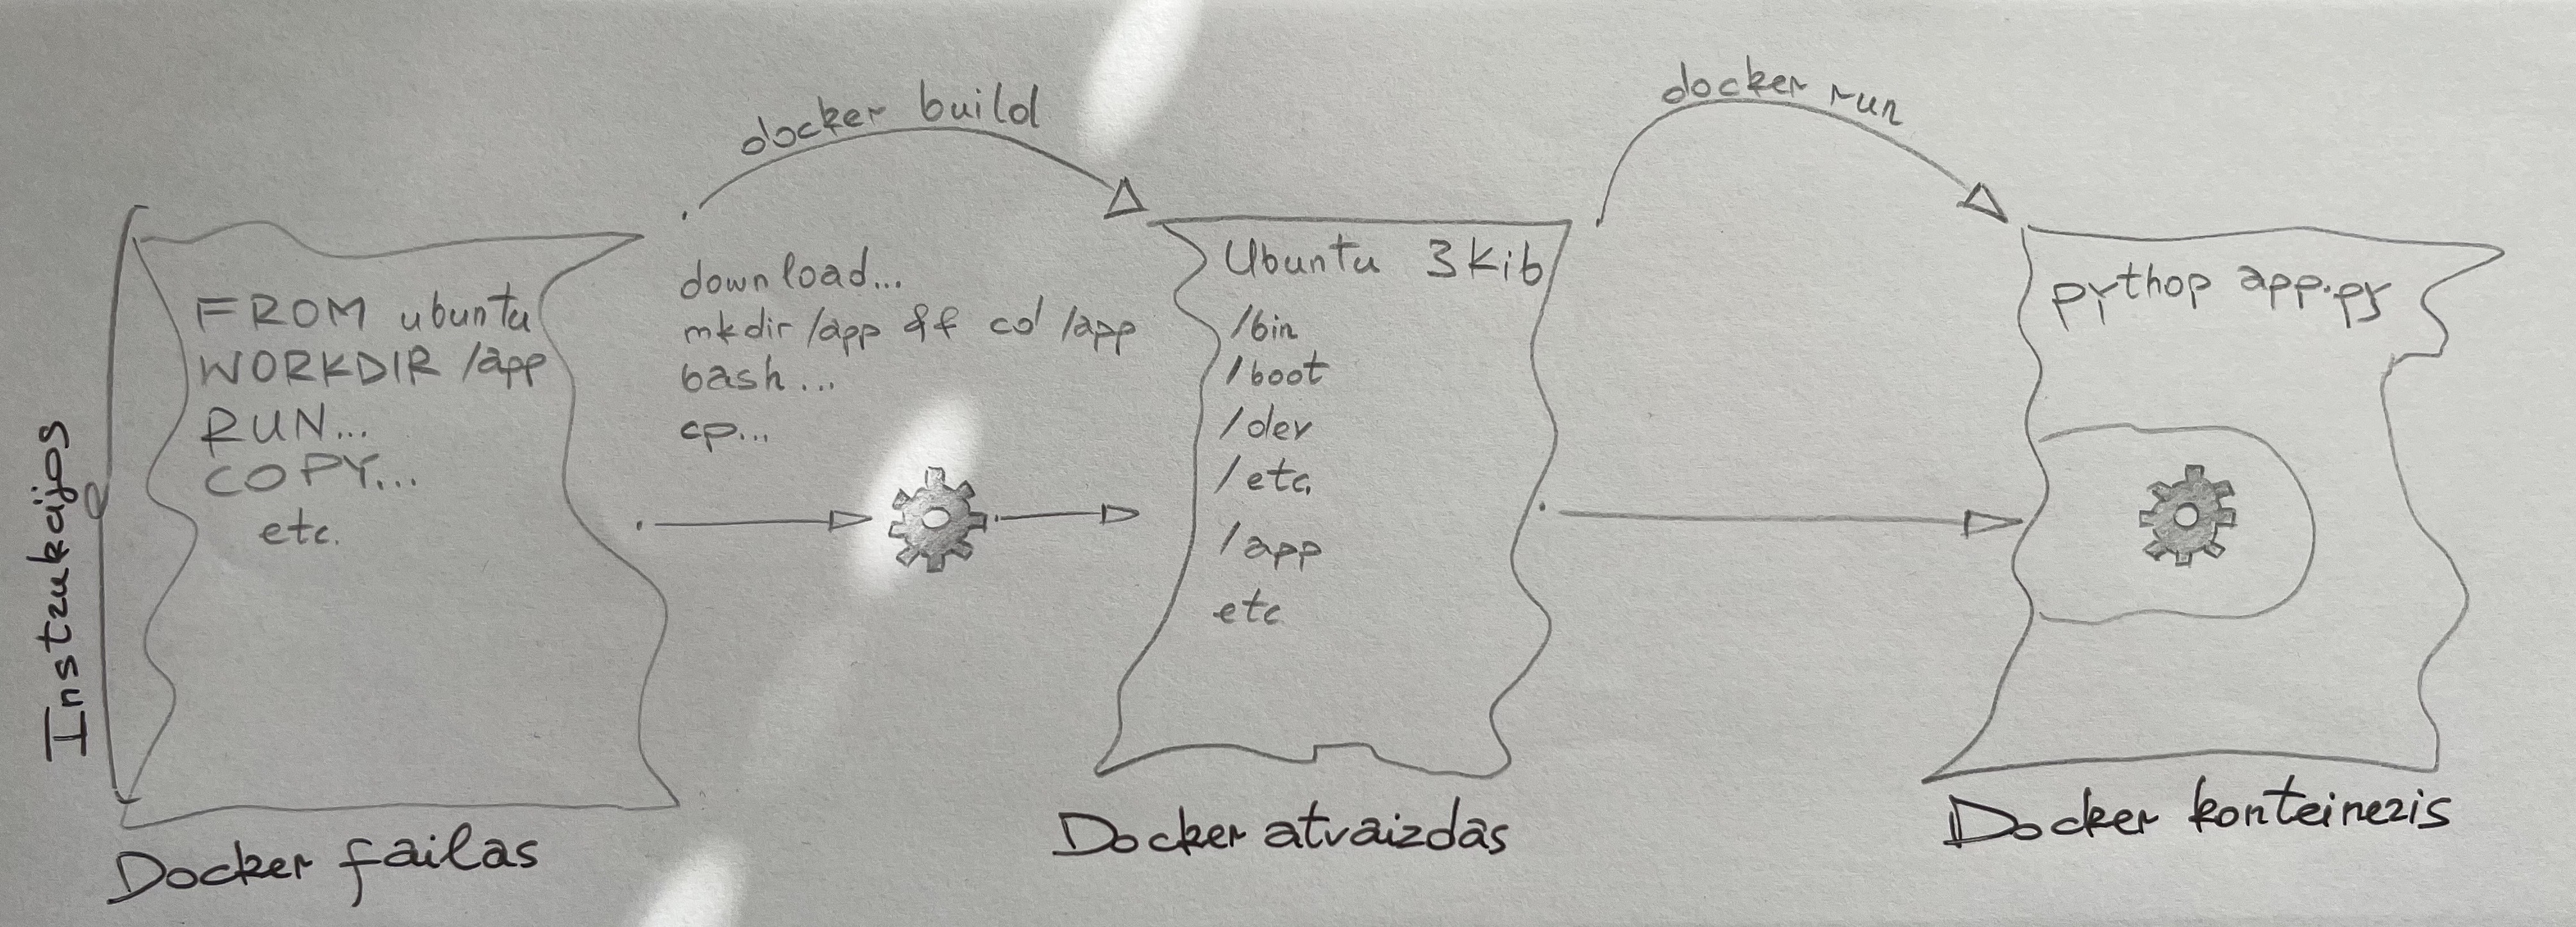 docker build
docker run
Instrukcijos
FROM ubuntu
WORKDIR /app
RUN...
COPY...
etc.
download...
mkdir /app && cd /app
bash...
cp...
Ubuntu 3Kib
/bin
/boot
/dev
/etc
/app
etc
python app.py
Docker failas
Docker atvaizdas
Docker konteineris